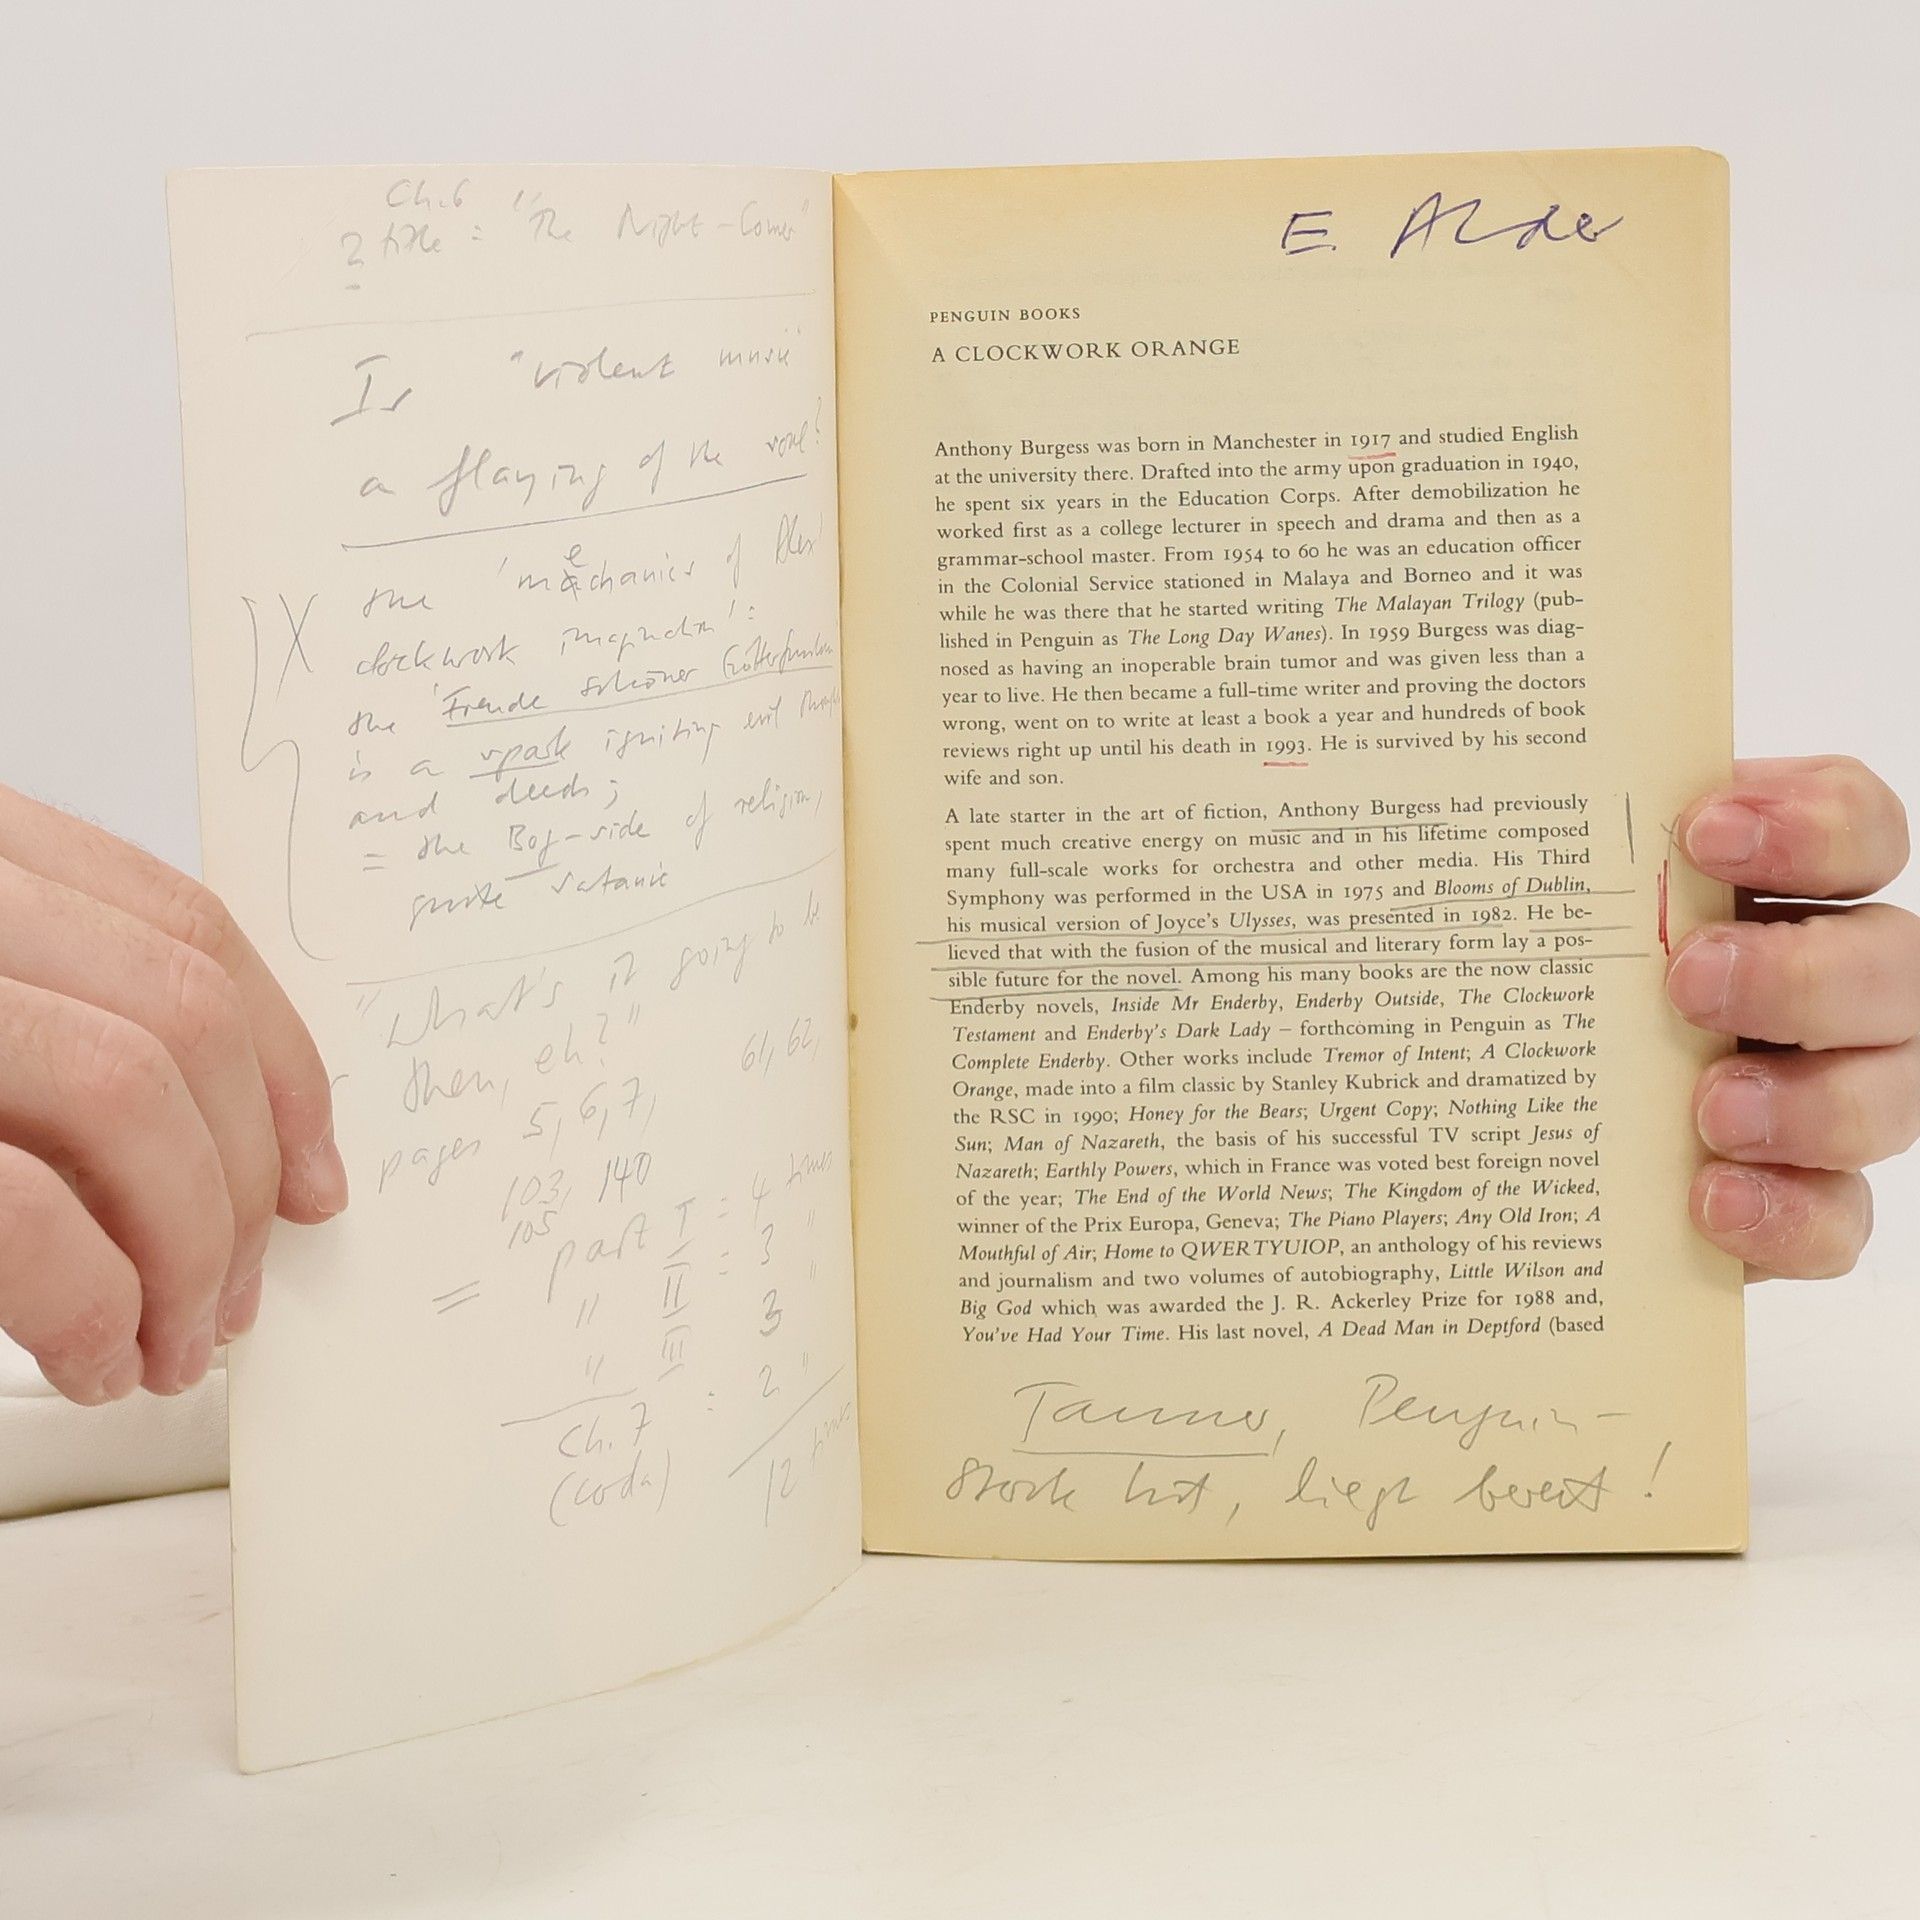 Ch. 6
? title = "The Night-Comer"
Is "violent music"
a flaying of the soul?
the 'mechanics of Alex'
clockwork imagination':
the 'Freude schöner Götterfunken
is a spark igniting evil
and deeds;
= the Bog-side of religion,
quite satanic
"What's it going to be
then, eh?"
pages 5, 6, 7, 61, 62,
103, 140
105
= part I = 4 times
" II = 3 "
" III 3 "
Ch. 7 : 2 "
(coda) 12 times
E. Alder
PENGUIN BOOKS
A CLOCKWORK ORANGE
Anthony Burgess was born in Manchester in 1917 and studied English
at the university there. Drafted into the army upon graduation in 1940,
he spent six years in the Education Corps. After demobilization he
worked first as a college lecturer in speech and drama and then as a
grammar-school master. From 1954 to 60 he was an education officer
in the Colonial Service stationed in Malaya and Borneo and it was
while he was there that he started writing The Malayan Trilogy (pub-
lished in Penguin as The Long Day Wanes). In 1959 Burgess was diag-
nosed as having an inoperable brain tumor and was given less than a
year to live. He then became a full-time writer and proving the doctors
wrong, went on to write at least a book a year and hundreds of book
reviews right up until his death in 1993. He is survived by his second
wife and son.
A late starter in the art of fiction, Anthony Burgess had previously
spent much creative energy on music and in his lifetime composed
many full-scale works for orchestra and other media. His Third
Symphony was performed in the USA in 1975 and Blooms of Dublin,
his musical version of Joyce's Ulysses, was presented in 1982. He be-
lieved that with the fusion of the musical and literary form lay a pos-
sible future for the novel. Among his many books are the now classic
Enderby novels, Inside Mr Enderby, Enderby Outside, The Clockwork
Testament and Enderby's Dark Lady – forthcoming in Penguin as The
Complete Enderby. Other works include Tremor of Intent; A Clockwork
Orange, made into a film classic by Stanley Kubrick and dramatized by
the RSC in 1990; Honey for the Bears; Urgent Copy; Nothing Like the
Sun; Man of Nazareth, the basis of his successful TV script Jesus of
Nazareth; Earthly Powers, which in France was voted best foreign novel
of the year; The End of the World News; The Kingdom of the Wicked,
winner of the Prix Europa, Geneva; The Piano Players; Any Old Iron; A
Mouthful of Air; Home to QWERTYUIOP, an anthology of his reviews
and journalism and two volumes of autobiography, Little Wilson and
Big God which was awarded the J. R. Ackerley Prize for 1988 and,
You've Had Your Time. His last novel, A Dead Man in Deptford (based
Tanner, Penguin-
Stock list, liegt bereit!